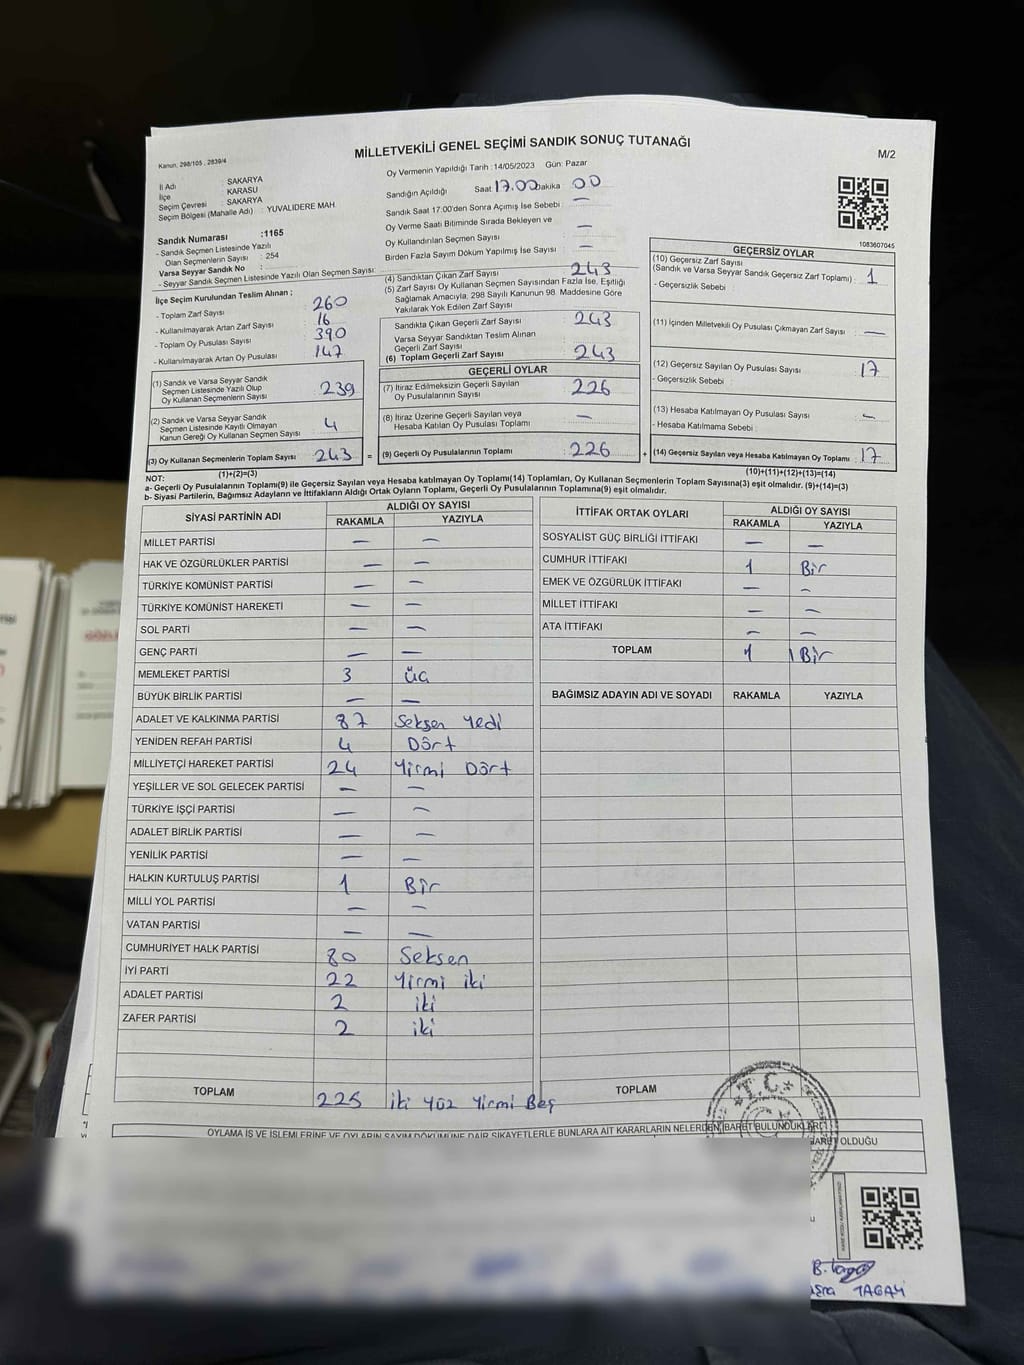 MİLLETVEKİLİ GENEL SEÇİMİ SANDIK SONUÇ TUTANAĞI
Kanun, 298/105 , 2839/4
M/2
İl Adı : SAKARYA
İlçe : KARASU
Seçim Çevresi : SAKARYA
Seçim Bölgesi (Mahalle Adı) : YUVALIDERE MAH.
Sandık Numarası :1165
- Sandık Seçmen Listesinde Yazılı
Olan Seçmenlerin Sayısı : 254
Varsa Seyyar Sandık No :
- Seyyar Sandık Seçmen Listesinde Yazılı Olan Seçmen Sayısı:
İlçe Seçim Kurulundan Teslim Alınan ;
- Toplam Zarf Sayısı 260
- Kullanılmayarak Artan Zarf Sayısı 16
- Toplam Oy Pusulası Sayısı 390
- Kullanılmayarak Artan Oy Pusulası 147
(1) Sandık ve Varsa Seyyar Sandık
Seçmen Listesinde Yazılı Olup
Oy Kullanan Seçmenlerin Sayısı 239
(2) Sandık ve Varsa Seyyar Sandık
Seçmen Listesinde Kayıtlı Olmayan
Kanun Gereği Oy Kullanan Seçmen Sayısı 4
(3) Oy Kullanan Seçmenlerin Toplam Sayısı 243 =
(1)+(2)=(3)
Oy Vermenin Yapıldığı Tarih : 14/05/2023 Gün: Pazar
Sandığın Açıldığı Saat 17.00 Dakika 00
Sandık Saat 17:00'den Sonra Açımış İse Sebebi: —
Oy Verme Saati Bitiminde Sırada Bekleyen ve
Oy Kullandırılan Seçmen Sayısı —
Birden Fazla Sayım Döküm Yapılmış İse Sayısı : —
(4) Sandıktan Çıkan Zarf Sayısı 243
(5) Zarf Sayısı Oy Kullanan Seçmen Sayısından Fazla İse, Eşitliği
Sağlamak Amacıyla, 298 Sayılı Kanunun 98. Maddesine Göre
Yakılarak Yok Edilen Zarf Sayısı
Sandıkta Çıkan Geçerli Zarf Sayısı 243
Varsa Seyyar Sandıktan Teslim Alınan
Geçerli Zarf Sayısı
(6) Toplam Geçerli Zarf Sayısı 243
GEÇERLİ OYLAR
(7) İtiraz Edilmeksizin Geçerli Sayılan
Oy Pusulalarının Sayısı 226
(8) İtiraz Üzerine Geçerli Sayılan veya
Hesaba Katılan Oy Pusulası Toplamı —
(9) Geçerli Oy Pusulalarının Toplamı 226 +
1083607045
GEÇERSİZ OYLAR
(10) Geçersiz Zarf Sayısı
(Sandık ve Varsa Seyyar Sandık Geçersiz Zarf Toplamı) : 1
- Geçersizlik Sebebi :
(11) İçinden Milletvekili Oy Pusulası Çıkmayan Zarf Sayısı —
(12) Geçersiz Sayılan Oy Pusulası Sayısı 17
- Geçersizlik Sebebi :
(13) Hesaba Katılmayan Oy Pusulası Sayısı —
- Hesaba Katılmama Sebebi :
(14) Geçersiz Sayılan veya Hesaba Katılmayan Oy Toplamı 17
(10)+(11)+(12)+(13)=(14)
NOT:
a- Geçerli Oy Pusulalarının Toplamı(9) ile Geçersiz Sayılan veya Hesaba katılmayan Oy Toplamı(14) Toplamları, Oy Kullanan Seçmenlerin Toplam Sayısına(3) eşit olmalıdır. (9)+(14)=(3)
b- Siyasi Partilerin, Bağımsız Adayların ve İttifakların Aldığı Ortak Oyların Toplamı, Geçerli Oy Pusulalarının Toplamına(9) eşit olmalıdır.
SİYASİ PARTİNİN ADI ALDIĞI OY SAYISI
RAKAMLA YAZIYLA
MİLLET PARTİSİ — —
HAK VE ÖZGÜRLÜKLER PARTİSİ — —
TÜRKİYE KOMÜNİST PARTİSİ — —
TÜRKİYE KOMÜNİST HAREKETİ — —
SOL PARTİ — —
GENÇ PARTİ — —
MEMLEKET PARTİSİ 3 üç
BÜYÜK BİRLİK PARTİSİ — —
ADALET VE KALKINMA PARTİSİ 87 Seksen Yedi
YENİDEN REFAH PARTİSİ 4 Dört
MİLLİYETÇİ HAREKET PARTİSİ 24 Yirmi Dört
YEŞİLLER VE SOL GELECEK PARTİSİ — —
TÜRKİYE İŞÇİ PARTİSİ — —
ADALET BİRLİK PARTİSİ — —
YENİLİK PARTİSİ — —
HALKIN KURTULUŞ PARTİSİ 1 Bir
MİLLİ YOL PARTİSİ — —
VATAN PARTİSİ — —
CUMHURİYET HALK PARTİSİ 80 Seksen
İYİ PARTİ 22 Yirmi iki
ADALET PARTİSİ 2 iki
ZAFER PARTİSİ 2 iki
TOPLAM 225 iki Yüz Yirmi Beş
İTTİFAK ORTAK OYLARI ALDIĞI OY SAYISI
RAKAMLA YAZIYLA
SOSYALİST GÜÇ BİRLİĞİ İTTİFAKI — —
CUMHUR İTTİFAKI 1 Bir
EMEK VE ÖZGÜRLÜK İTTİFAKI — —
MİLLET İTTİFAKI — —
ATA İTTİFAKI — —
TOPLAM 1 Bir
BAĞIMSIZ ADAYIN ADI VE SOYADI RAKAMLA YAZIYLA
TOPLAM
T.C.
OYLAMA İŞ VE İŞLEMLERİNE VE OYLARIN SAYIM DÖKÜMÜNE DAİR ŞİKAYETLERLE BUNLARA AİT KARARLARIN NELERDEN
OLDUĞU